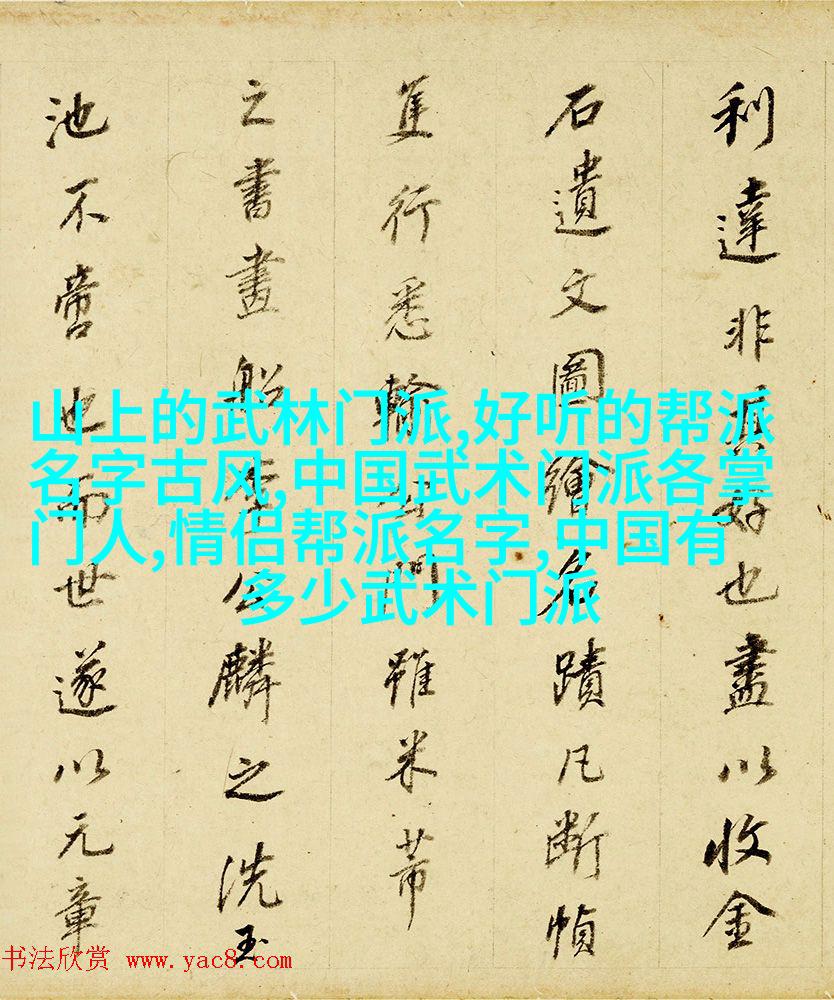 利達非其好也盡以收金
石遺文圖繪名蹟凡斷幀
隻行悉輸門雖米芾
之書畫船李公麟之洗玉
池不啻也而世遂以元章
山上的武林门派,好听的帮派
名字古风,中国武术门派各掌
门人,情侣帮派名字,中国有
多少武术门派
书法欣赏 www.yac8.com